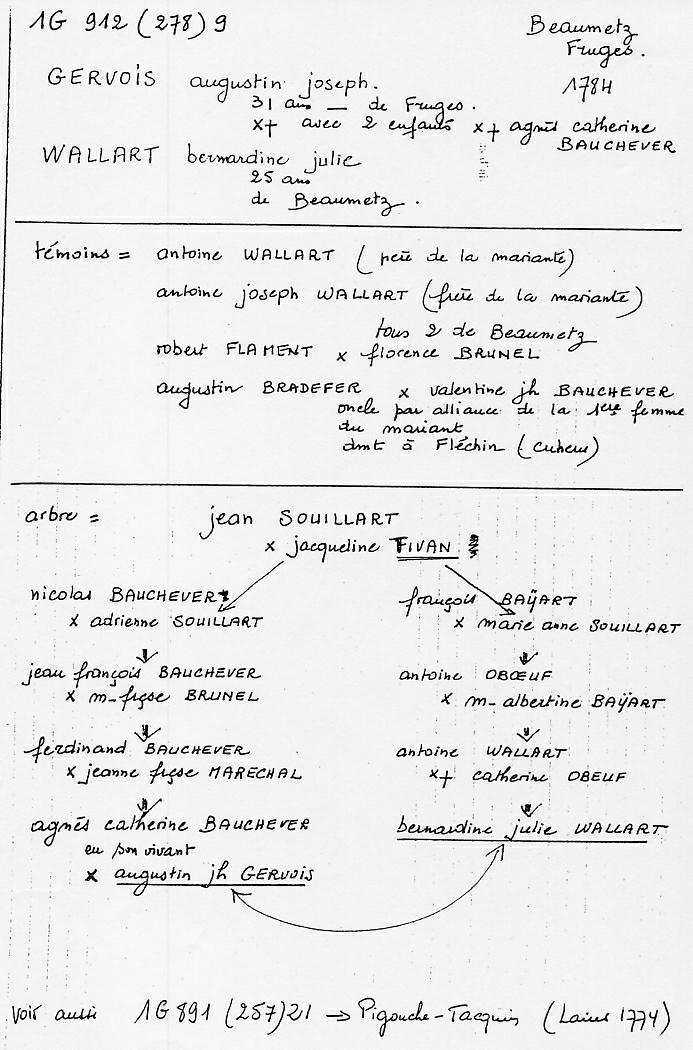 1G 912 (278) 9
Beaumetz
Fruges.
1784
GERVOIS augustin joseph.
31 ans — de Fruges.
x+ avec 2 enfants x+ agnès catherine
BAUCHEVER
WALLART bernardine julie
25 ans
de Beaumetz.
témoins = antoine WALLART (père de la mariante)
antoine joseph WALLART (frère de la mariante)
tous 2 de Beaumetz
robert FLAMENT x florence BRUNEL
augustin BRADEFER x valentine jh BAUCHEVER
oncle par alliance de la 1ère femme
du mariant
dmt à Fléchin (Cuhem)
arbre =
jean SOUILLART
x jacqueline FIVAN
nicolas BAUCHEVER
x adrienne SOUILLART
jean françois BAUCHEVER
x m-fçse BRUNEL
ferdinand BAUCHEVER
x jeanne fçse MARECHAL
agnès catherine BAUCHEVER
en son vivant
x augustin jh GERVOIS
françois BAŸART
x marie anne SOUILLART
antoine OBŒUF
x m-albertine BAŸART
antoine WALLART
x+ catherine OBEUF
bernardine julie WALLART
Voir aussi 1G 891 (257) 21 → Pigouche-Tacquin (Laires 1774)